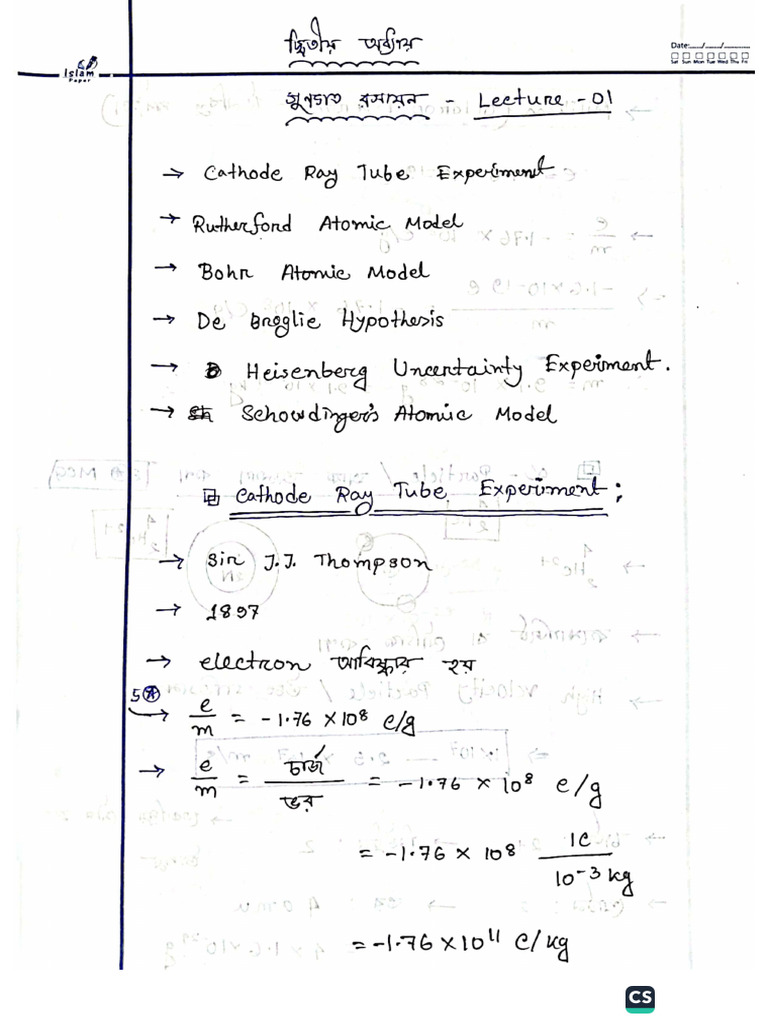 দ্বিতীয় অধ্যায়
Date:__/__/__
Sat Sun Mon Tue Wed Thu Fri
Islam
Paper
গুণগত রসায়ন - Lecture - 01
→ Cathode Ray Tube Experiment
→ Rutherford Atomic Model
→ Bohr Atomic Model
→ De Broglie Hypothesis
→ Heisenberg Uncertainty Experiment.
→ Schowdinger's Atomic Model
Cathode Ray Tube Experiment:
→ Sir J.J. Thompson
→ 1897
→ electron আবিষ্কার হয়
5
→ e/m = -1.76 × 10⁸ c/g
→ e/m = চার্জ/ভর = -1.76 × 10⁸ c/g
= -1.76 × 10⁸ 1c/10⁻³ kg
= -1.76 × 10¹¹ c/kg
CS